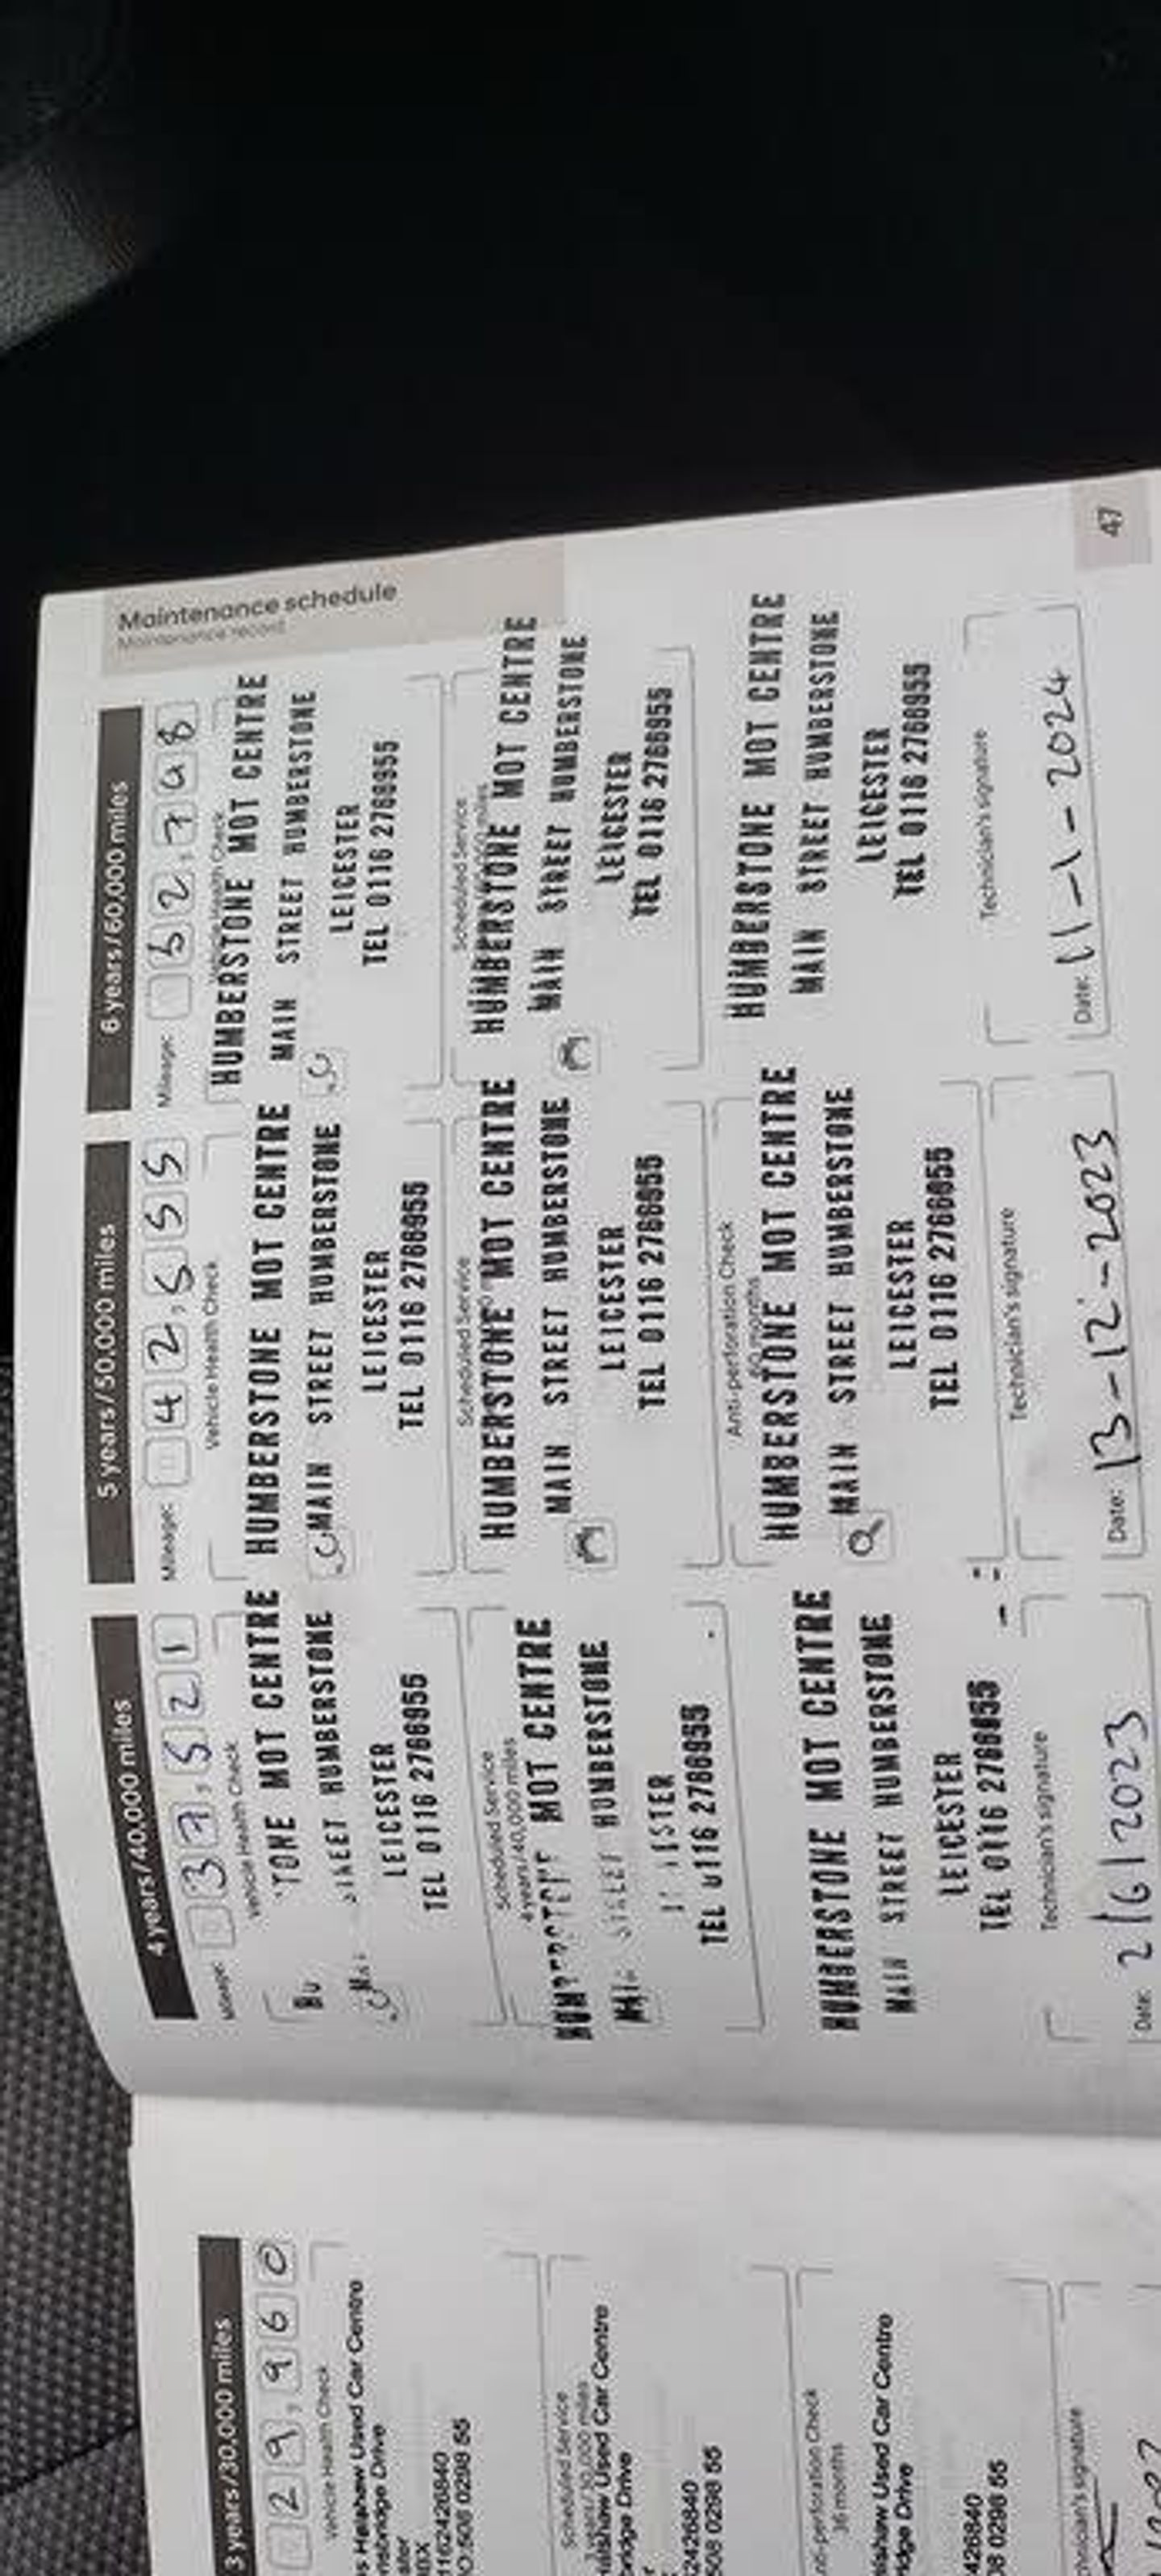 3 years/30,000 miles
29,960
Vehicle Health Check
Used Car Centre
Drive
01162426840
508 0298 55
Scheduled Service
3 years/30,000 miles
Used Car Centre
Drive
2426840
508 0298 55
Anti-perforation Check
36 months
Used Car Centre
Drive
426840
0298 55
Technician's signature
Maintenance schedule
Maintenance record
4 years/40,000 miles
Mileage: 37,521
Vehicle Health Check
TONE MOT CENTRE
STREET HUMBERSTONE
LEICESTER
TEL 0116 2766955
Scheduled Service
4 years/40,000 miles
HUMBERSTONE MOT CENTRE
MAIN STREET HUMBERSTONE
LEICESTER
TEL 0116 2766955
HUMBERSTONE MOT CENTRE
MAIN STREET HUMBERSTONE
LEICESTER
TEL 0116 2766955
Technician's signature
Date: 2/6/2023
5 years/50,000 miles
Mileage: 42,555
Vehicle Health Check
HUMBERSTONE MOT CENTRE
MAIN STREET HUMBERSTONE
LEICESTER
TEL 0116 2766955
Scheduled Service
HUMBERSTONE MOT CENTRE
MAIN STREET HUMBERSTONE
LEICESTER
TEL 0116 2766955
Anti-perforation Check
60 months
HUMBERSTONE MOT CENTRE
MAIN STREET HUMBERSTONE
LEICESTER
TEL 0116 2766955
Technician's signature
Date: 13-12-2023
6 years/60,000 miles
Mileage:
Vehicle Health Check
HUMBERSTONE MOT CENTRE
MAIN STREET HUMBERSTONE
LEICESTER
TEL 0116 2766955
Scheduled Service
HUMBERSTONE MOT CENTRE
MAIN STREET HUMBERSTONE
LEICESTER
TEL 0116 2766955
HUMBERSTONE MOT CENTRE
MAIN STREET HUMBERSTONE
LEICESTER
TEL 0116 2766955
Technician's signature
Date: 11-1-2024
47